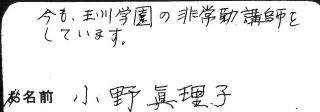 今も、玉川学園の非常勤講師を
しています。
お名前 小野眞理子